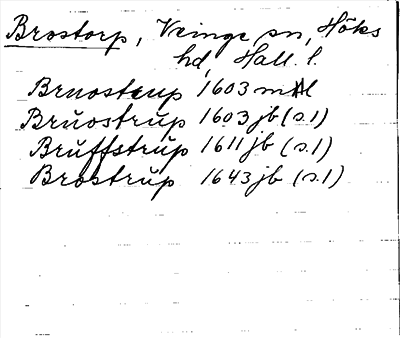 Brostorp, Veinge sn, Höks
hd, Hall. l.
Bruosteup 1603 ml
Brŭostrŭp 1603 jb (s.1)
Brŭffstrŭp 1611 jb (s.1)
Brostrŭp 1643 jb (s.1)